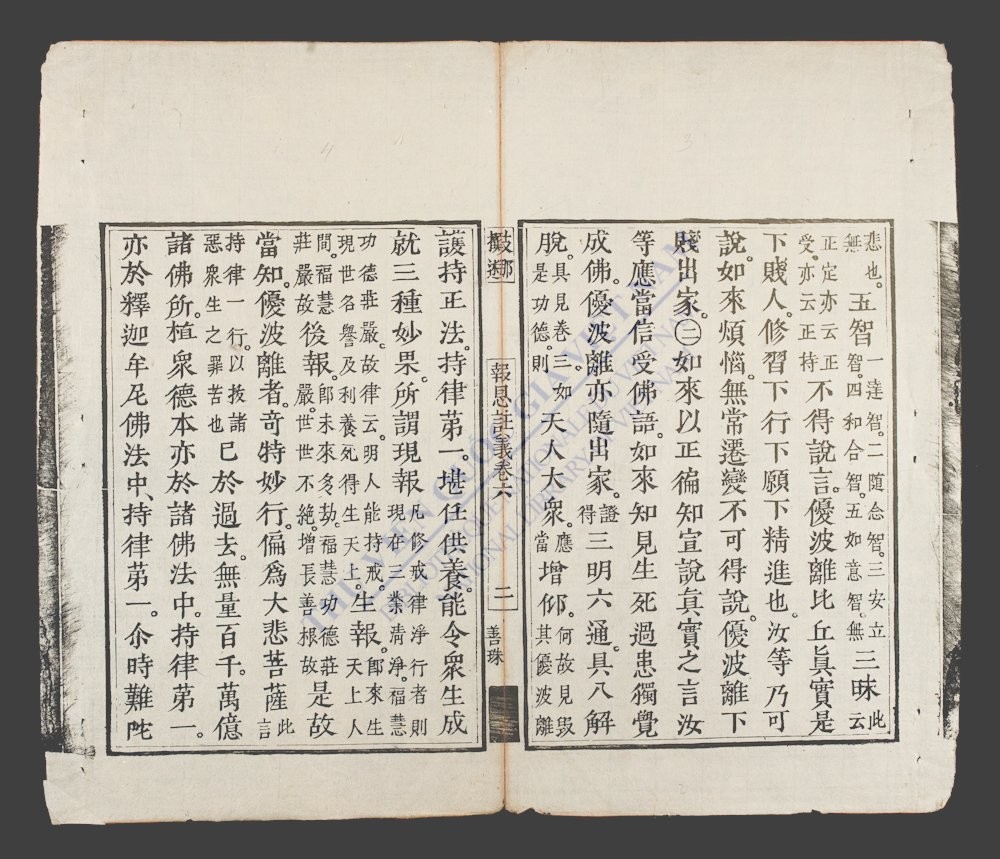 悲也。無五智一達智。二隨念智。三安立智。四和合智。五如意智。無三昧此云
正定亦云正受。亦云正持不得說言。優波離比丘眞實是
下賤人。修習下行下願下精進也。汝等乃可
說。如來煩惱。無常遷變。不可得說。優波離下
賤出家。㊁如來以正徧知。宣說眞實之言。汝
等應當信受佛語。如來知見生死過患。獨覺
成佛。優波離亦隨出家。證得三明六通。具八解
脫。具見卷三。如是功德。則天人大衆。應當增仰。何故見毀其優波離
報恩註義卷六
二
善珠
護持正法。持律苐一。堪任供養。能令衆生成
就三種妙果。所謂現報凡修戒律淨行者。則現在三業清淨。福慧
功德莊嚴。故律云。明人能持戒。現世名譽及利養。死得生天上。生報。卽來生天上人
間。福慧莊嚴故後報。卽未來多劫。福慧功德莊嚴。世世不絕。增長善根故是故
當知。優波離者。奇特妙行。偏爲大悲菩薩此言
持律一行。以拔諸惡衆生之罪苦也已於過去。無量百千。萬億
諸佛所。植衆德本。亦於諸佛法中。持律苐一。
亦於釋迦牟尼佛法中、持律苐一。尒時難陀
THƯ VIỆN QUỐC GIA VIỆT NAM
NATIONAL LIBRARY OF VIETNAM